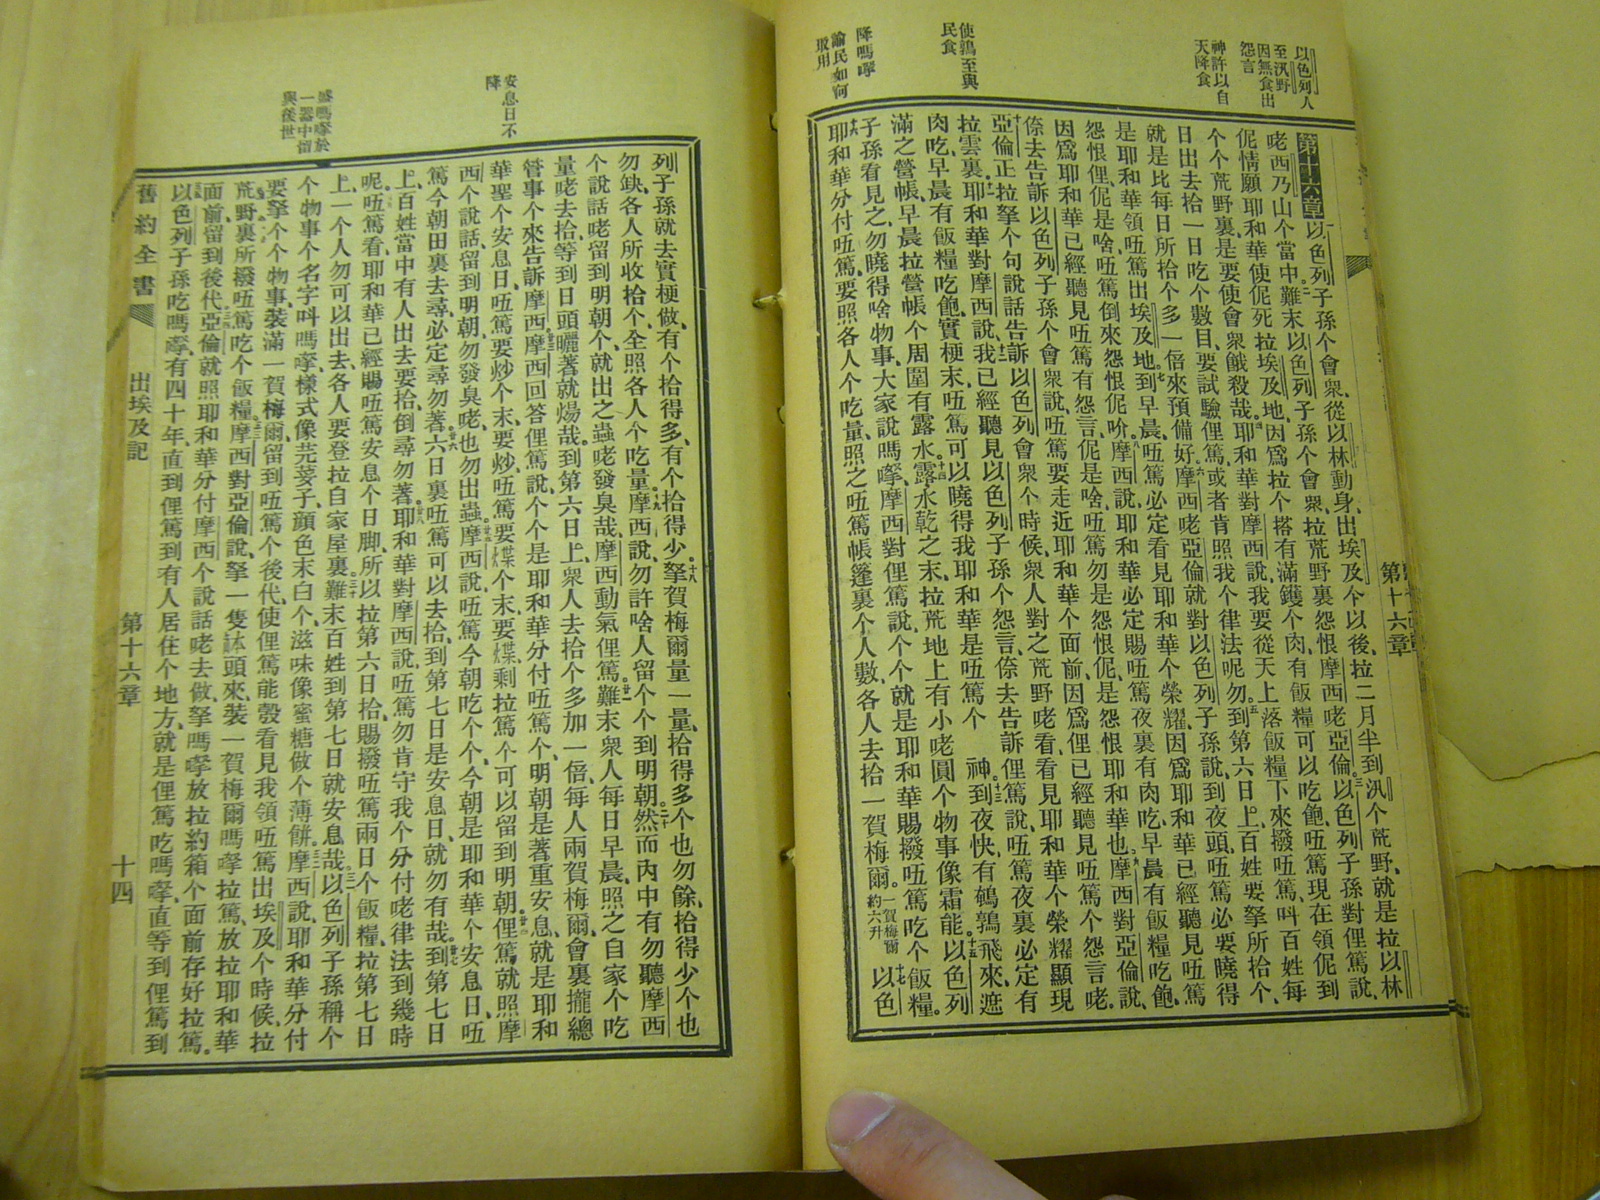 以色列人
至汛野
因無食出
怨言
神許以自
天降食
使鶉至與
民食
降嗎㗱
諭民如何
取用
第十六章
第十六章以色列子孫个會衆、從以林動身、出埃及个以後、拉二月半到汛个荒野、就是拉以林
咾西乃山个當中。難末以色列子孫个會衆、拉荒野裏怨恨摩西咾亞倫。以色列子孫對俚篤說、
伲情願耶和華使伲死拉埃及地、因爲拉个搭有滿鑊个肉、有飯糧可以吃飽、㑚篤現在領伲到
个个荒野裏、是要使會衆餓殺哉。耶和華對摩西說、我要從天上落飯糧下來撥㑚篤、呌百姓每
日出去拾一日吃个數目、要試驗俚篤、或者肯照我个律法呢勿。到第六日上、百姓要拏所拾个、
就是比每日所拾个多一倍來預備好。摩西咾亞倫就對以色列子孫說、到夜頭㑚篤必要曉得
是耶和華領㑚篤出埃及地。到早晨、㑚篤必定看見耶和華个榮耀、因爲耶和華已經聽見㑚篤
怨恨俚、伲是啥、㑚篤倒來怨恨伲吤。摩西說、耶和華必定賜㑚篤夜裏有肉吃、早晨有飯糧吃飽、
因爲耶和華已經聽見㑚篤有怨言、伲是啥、㑚篤勿是怨恨伲、是怨恨耶和華也。摩西對亞倫說、
倷去告訴以色列子孫个會衆說、㑚篤要走近耶和華个面前、因爲俚已經聽見㑚篤个怨言咾。
亞倫正拉拏个句說話告訴以色列會衆个時候、衆人對之荒野咾看、看見耶和華个榮耀顯現
拉雲裏。耶和華對摩西說、我已經聽見以色列子孫个怨言、倷去告訴俚篤說、㑚篤夜裏必定有
肉吃、早晨有飯糧吃飽、實梗末、㑚篤可以曉得我耶和華是㑚篤个 神。到夜快、有鵪鶉飛來、遮
滿之營帳、早晨拉營帳个周圍有露水。露水乾之末、拉荒地上有小咾圓个物事像霜能。以色列
子孫看見之、勿曉得啥物事、大家說嗎㗱。摩西對俚篤說、个个就是耶和華賜撥㑚篤吃个飯糧。
耶和華分付㑚篤、要照各人个吃量、照之㑚篤帳篷裏个人數、各人去拾一賀梅爾。一賀梅爾約六升 以色
安息日不
降
盛嗎㗱於
一器中留
與後世
列子孫就去實梗做、有个拾得多、有个拾得少。拏賀梅爾量一量、拾得多个也勿餘、拾得少个也
勿缺、各人所收拾个、全照各人个吃量。摩西說、勿許啥人留个个到明朝。然而內中有勿聽摩西
个說話咾留到明朝个、就出之蟲咾發臭哉、摩西動氣俚篤。難末衆人每日早晨、照之自家个吃
量咾去拾、等到日頭曬著就煬哉。到第六日上、衆人去拾个多加一倍、每人兩賀梅爾、會裏攏總
管事个來告訴摩西。摩西回答俚篤說、个个是耶和華分付㑚篤个、明朝是著重安息、就是耶和
華聖个安息日、㑚篤要炒个末、要炒、㑚篤要煠个末要煠、剩拉篤个可以留到明朝。俚篤就照摩
西个說話、留到明朝、勿發臭咾、也勿出蟲。摩西說、㑚篤今朝吃个个、今朝是耶和華个安息日、㑚
篤今朝田裏去尋、必定尋勿著。六日裏㑚篤可以去拾、到第七日是安息日、就勿有哉。到第七日
上、百姓當中有人出去要拾、倒尋勿著。耶和華對摩西說、㑚篤勿肯守我个分付咾律法到幾時
呢。㑚篤看、耶和華已經賜㑚篤安息个日脚、所以拉第六日拾、賜撥㑚篤兩日个飯糧、拉第七日
上、一个人勿可以出去、各人要登拉自家屋裏。難末百姓到第七日就安息哉。以色列子孫稱个
个物事个名字呌嗎㗱、樣式像芫荽子、顔色末白个、滋味像蜜糖做个薄餅。摩西說、耶和華分付
要拏个个物事、裝滿一賀梅爾、留到㑚篤个後代、使俚篤能彀看見我領㑚篤出埃及个時候、拉
荒野裏所撥㑚篤吃个飯糧。摩西對亞倫說、拏一隻鉢頭來、裝一賀梅爾嗎㗱拉篤、放拉耶和華
面前、留到後代。亞倫就照耶和華分付摩西个說話咾去做、拏嗎㗱放拉約箱个面前存好拉篤。
以色列子孫吃嗎㗱、有四十年、直到俚篤到有人居住个地方、就是俚篤吃嗎㗱、直等到俚篤到
舊約全書
出埃及記
第十六章
十四